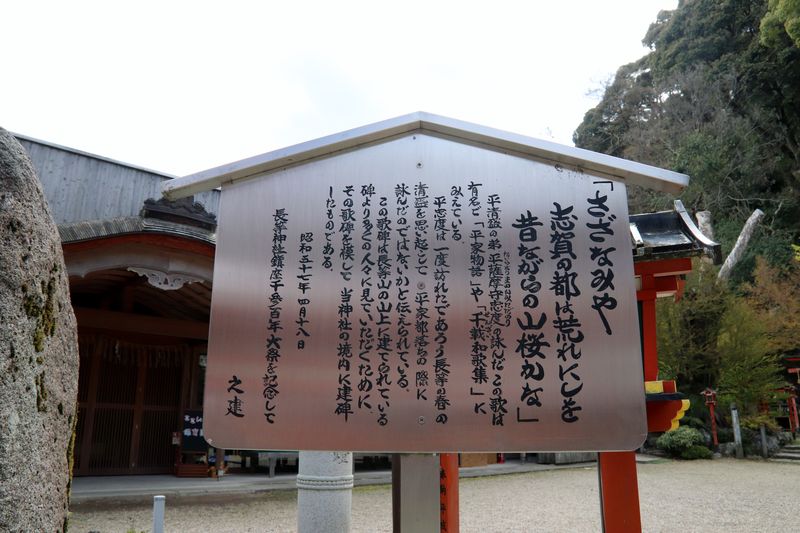 「さざなみや
志賀の都は荒れにしを
昔ながらの山桜かな」
平清盛の弟 平薩摩守忠度の詠んだこの歌は
有名で「平家物語」や「千載和歌集」に
みえている
平忠度は一度訪れたであろう長等の春の
清盛を思い起こして 平家都落ちの際に
詠んだのではないかと伝えられている
この歌碑は長等山の山上に建てられている
碑より多くの人々に見ていただくために
その歌碑を模して当神社の境内に建碑
したものである。
昭和五十七年 四月十八日
長等神社鎮座千参百年大祭を記念して
之建